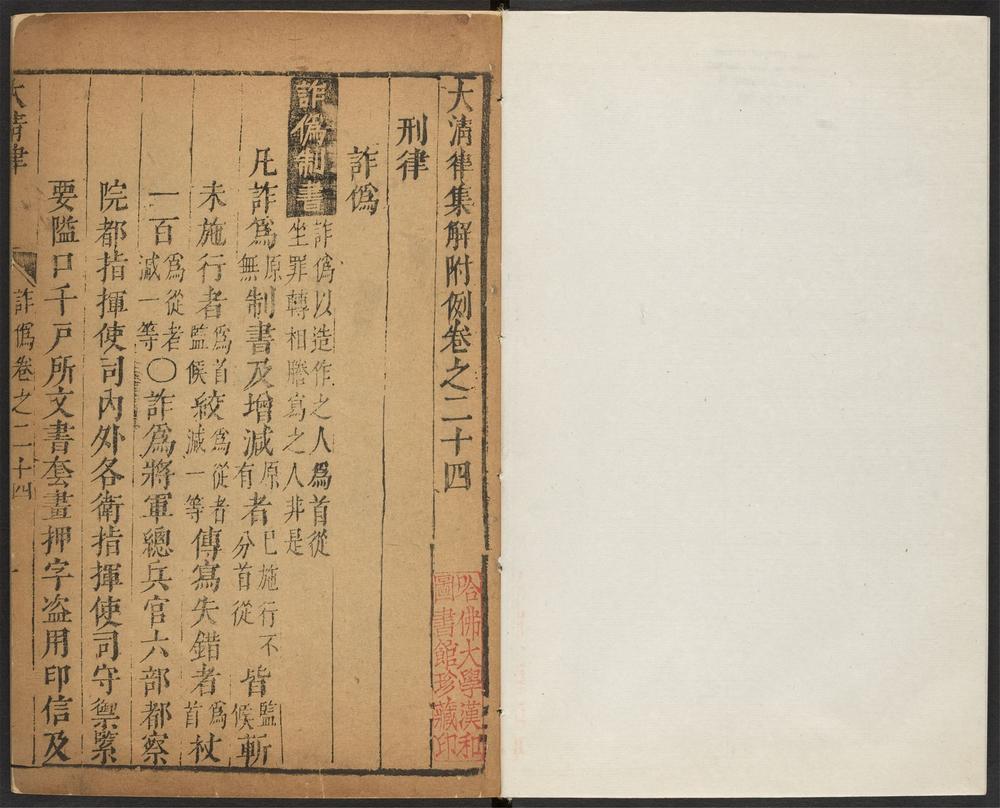 大清律集解附例卷之二十四
哈佛大學漢和
圖書館珍藏印
刑律
詐僞
詐僞制書詐僞以造作之人爲首從
坐罪轉相謄寫之人非是
凡詐爲原無制書及增減原有者已施行不分首從皆監候斬
未施行者爲首監候絞爲從者減一等傳寫失錯者爲首杖
一百爲從者減一等〇詐爲將軍總兵官六部都察
院都指揮使司內外各衛指揮使司守禦緊
要隘口千戶所文書套畫押字盜用印信及
大清律
詐僞卷之二十四
一